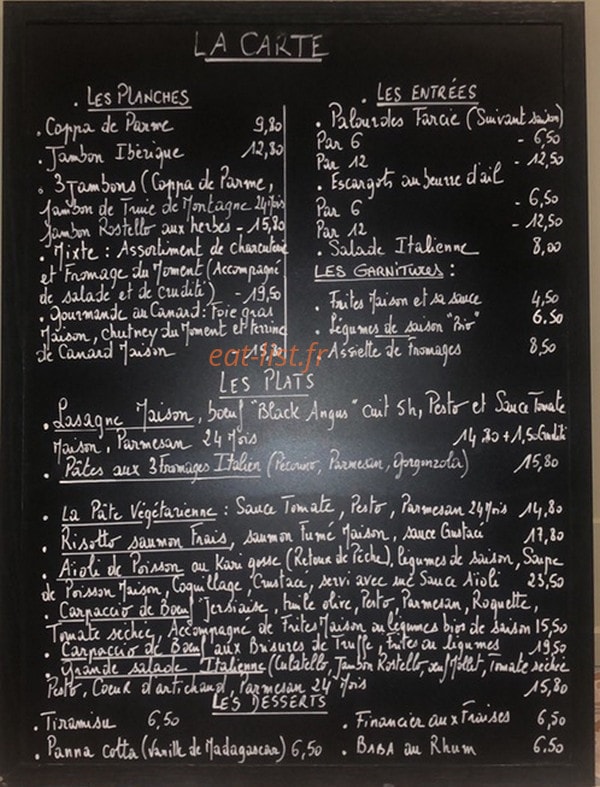 LA CARTE
LES PLANCHES
. Coppa de Parme 9,80
. Jambon Ibérique 12,80
. 3 Jambons (Coppa de Parme,
Jambon de Truie de Montagne 24 Mois
Jambon Rostello aux herbes - 15,80
. Mixte : Assortiment de charcuterie
et Fromage du Moment (Accompagné
de salade et de crudité) - 19,50
. Gourmande au Canard : Foie gras
Maison, chutney du Moment et Terrine
de Canard Maison
LES ENTRÉES
. Palourdes Farcie (Suivant saison)
Par 6 - 6,50
Par 12 - 12,50
. Escargots au beurre d'ail
Par 6 - 6,50
Par 12 - 12,50
. Salade Italienne 8,00
LES GARNITURES :
. Frites Maison et sa sauce 4,50
. Légumes de saison "Bio" 6.50
. Assiette de Fromages 8,50
eat-list.fr
LES PLATS
. Lasagne Maison, boeuf "Black Angus" cuit 5h, Pesto et Sauce Tomate
Maison, Parmesan 24 Mois 14,80 + 1,50 Crudité
. Pâtes aux 3 Fromages Italien (Pécorino, Parmesan, Gorgonzola) 15,80
. La Pâte Végétarienne : Sauce Tomate, Pesto, Parmesan 24 Mois 14,80
. Risotto saumon Frais, saumon Fumé Maison, sauce Crustacé 17,80
. Aïoli de Poisson au Kari gosse (Retour de Pêche), légumes de saison, Soupe
de Poisson Maison, Coquillage, Crustacé, servi avec sa Sauce Aïoli 23,50
. Carpaccio de Boeuf Jersiaise, huile olive, Pesto, Parmesan, Roquette,
Tomate séchée, Accompagné de Frites Maison ou légumes bios de saison 15,50
. Carpaccio de Boeuf aux Brisures de Truffe, frites ou légumes 19,50
. Grande salade Italienne (Culatello, Jambon Rostello, oeuf Mollet, Tomate séchée
Pesto, Coeur d'artichaud, Parmesan 24 Mois 15,80
LES DESSERTS
. Tiramisu 6,50
. Panna cotta (Vanille de Madagascar) 6,50
. Financier aux Fraises 6,50
. BABA au Rhum 6.50